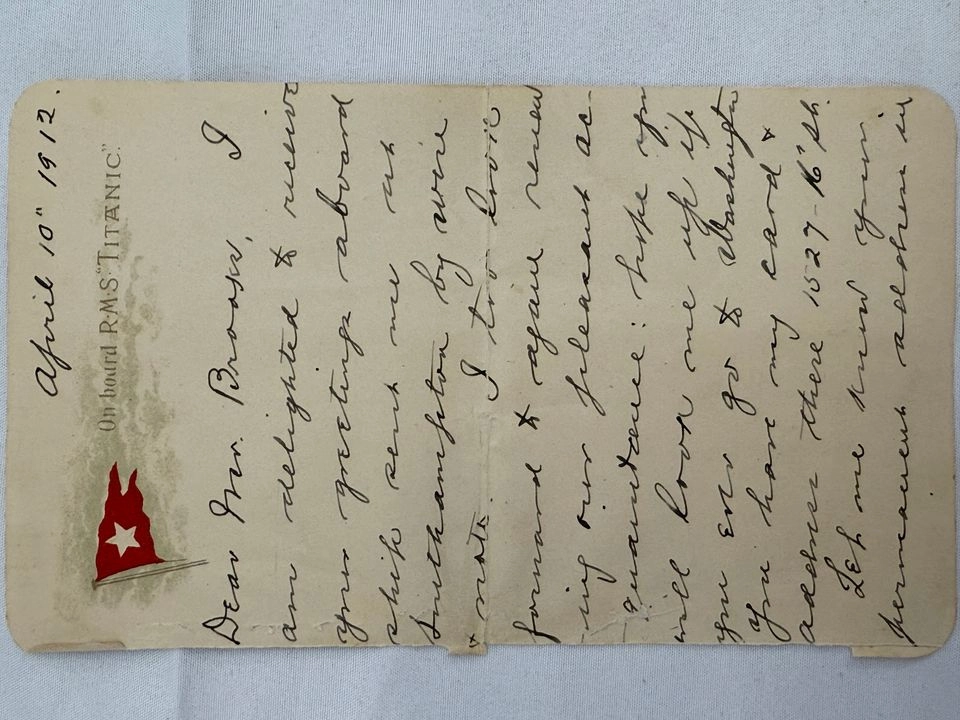 April 10" 1912.
On board R·M·S "TITANIC."
Dear Mr. Brooks, I
am delighted & receive
your greetings aboard
ship sent me at
Southampton by wire
& note. I too look
forward to again renew
-ing our pleasant ac-
quaintance: hope you
will look me up if
you ever go to Washington
you have my card &
address there 1527-16" St.
Let me know your
permanent address in